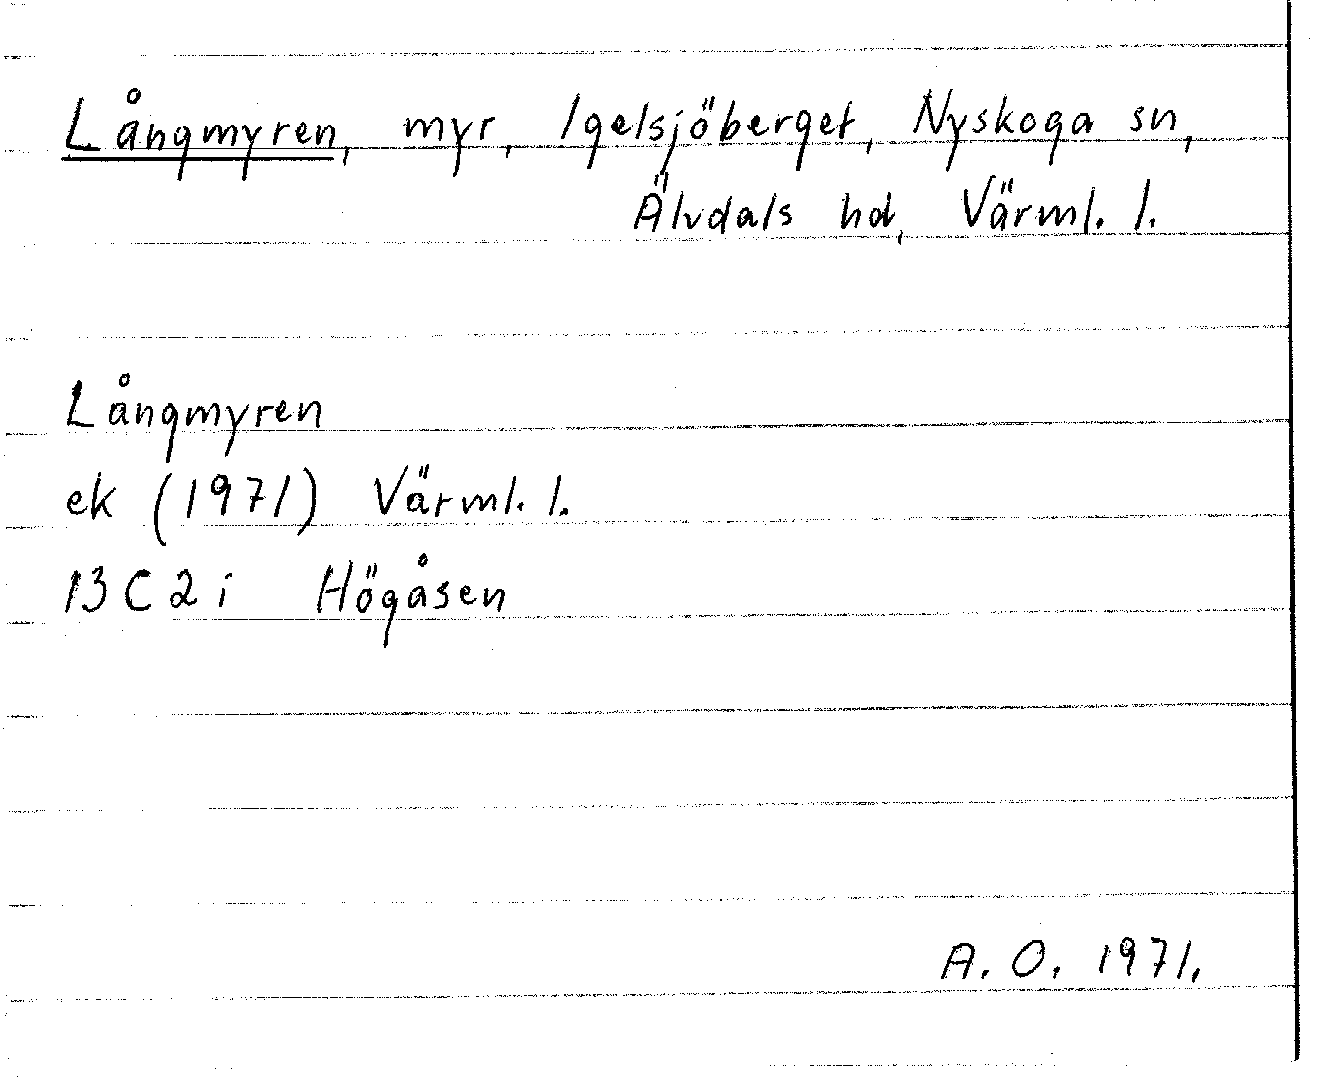 Långmyren, myr, Igelsjöberget, Nyskoga sn,
Älvdals hd, Värml. l.
Långmyren
ek (1971) Värml. l.
13C 2 i Högåsen
A. O. 1971.